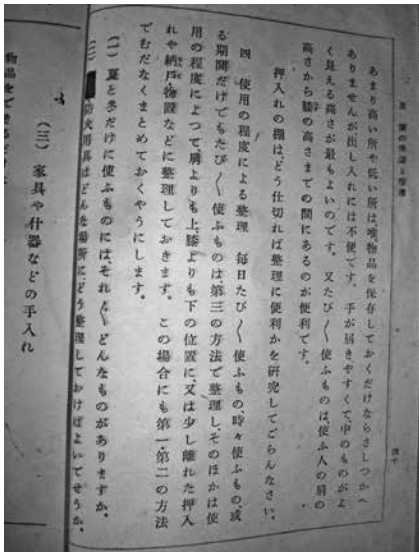 あまり高い所や低い所は唯物品を保存しておくだけならさしつかへ
ありませんが出し入れには不便です。手が届きやすくて、中のものがよ
く見える高さが最もよいのです。又たび〳〵使ふものは、使ふ人の肩の
高さから膝の高さまでの間にあるのが便利です。
押入れの棚は、どう仕切れば整理に便利かを研究してごらんなさい。
四 使用の程度による整理 毎日たび〳〵使ふもの、時々使ふもの、或
る期間だけでもたび〳〵使ふものは第三の方法で整理し、そのほかは使
用の程度によつて肩よりも上、膝よりも下の位置に、又は少し離れた押入
れや納戸・物置などに整理しておきます。この場合にも第一・第二の方法
でむだなくまとめておくやうにします。
(一) 夏と冬だけに使ふものには、それ〳〵どんなものがありますか。
防火用具はどんな場所にどう整理しておけばよいでせうか。
(三) 家具や什器などの手入れ